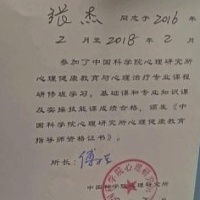 张杰 同志于2016年
2月至2018年2月
参加了中国科学院心理研究所
心理健康教育与心理治疗专业课程
研修班学习。基础课和专业知识课
及实操技能课成绩合格，颁发《中
国科学院心理研究所心理健康教育
指导师资格证书》。
所长：傅
中国科学院心理研究所